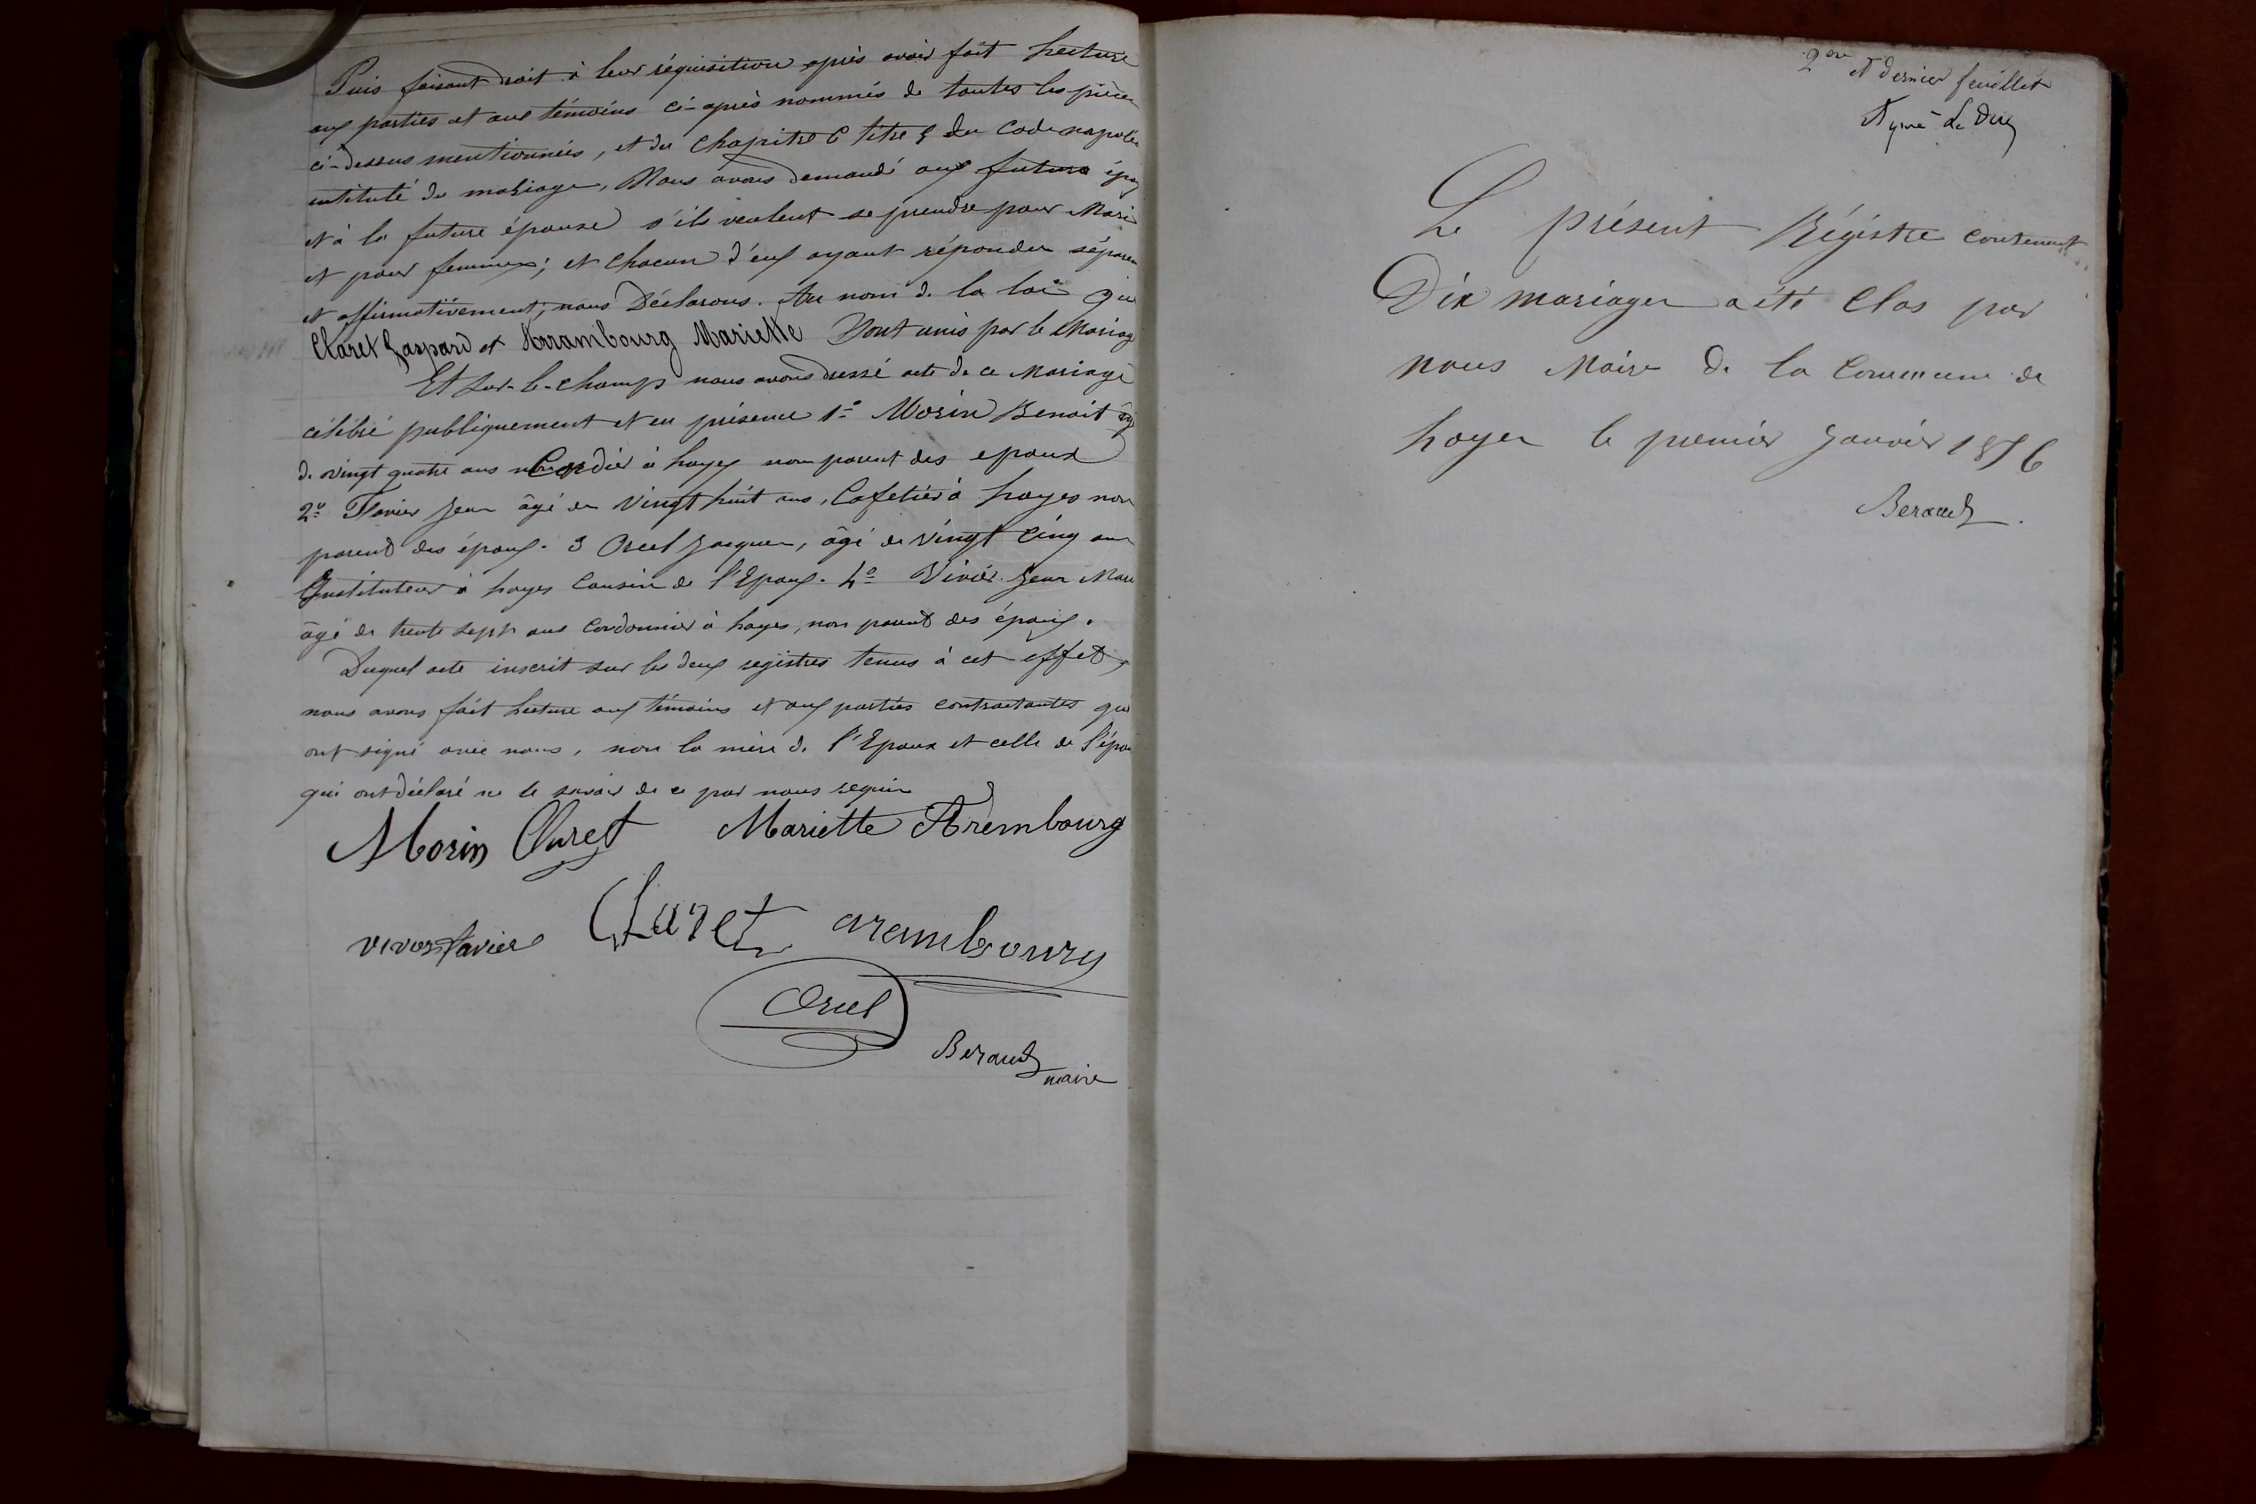 Puis faisant droit à leur réquisition après avoir fait Lecture
aux parties et aux témoins ci-après nommés de toutes les pièces
ci-dessus mentionnées, et du Chapitre 6 titre 5 du Code napolé
intitulé du mariage, Nous avons demandé aux futurs épou
et à la future épouse s'ils veulent se prendre pour Mari
et pour femme; et chacun d'eux ayant répondu séparem
et affirmativement, nous Déclarons. Au nom de la loi que
Claret Gaspard et Arrambourg Mariette Sont unis par le Mariage
Et sur-le-champ nous avons dressé acte de ce Mariage
célébré publiquement et en présence 1º Morin Benoit âgé
de vingt quatre ans à hayes non parent des epoux
2º Favier Jean âgé de Vingt huit ans, Cafetier à hayes non
parent des époux. 3 Orcel Jacques, âgé de vingt Cinq ans
Instituteur à hayes Cousin de l'Epoux. 4º Vivier Jean Marie
âgé de trente Sept ans Cordonnier à hayes, non parent des époux.
Duquel acte inscrit sur les deux registres tenus à cet effet,
nous avons fait Lecture aux témoins et aux parties contractantes qui
ont signé avec nous, non la mère de l'Epoux et celle de l'épou
qui ont déclaré ne le savoir de ce par nous requis
Morin Claret Mariette Arembourg
vivier favier Claret arembourg
Orcel
Beraud
maire
2eme et dernier feuillet
Aymé Le Duy
Le présent Régistre contenant
Dix mariages a été Clos par
nous Maire de la Commune de
hayes le premier Janvier 1876
Beraud